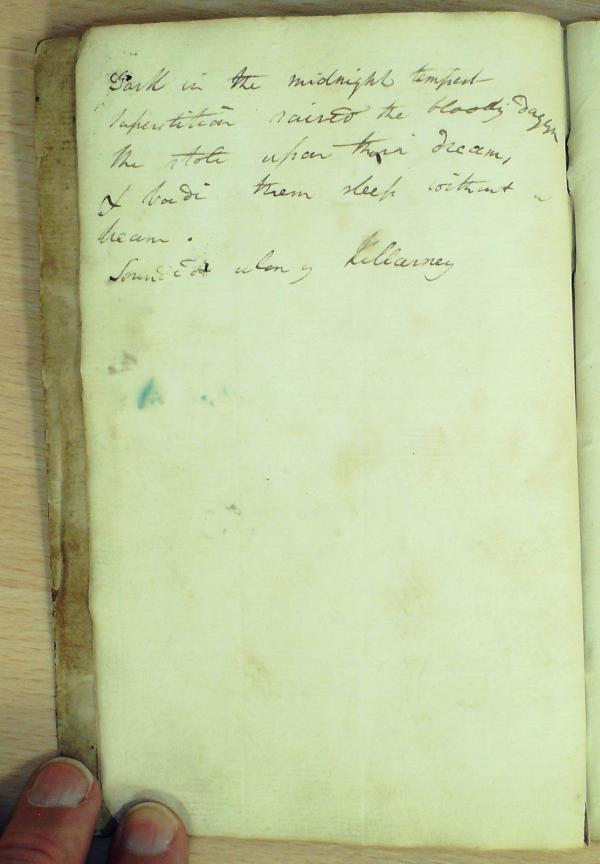 Dark in the midnight tempest
Superstition raised the bloody dagger
She stole upon their dream,
& bade them sleep without a
beam.
Sounded along Killarney